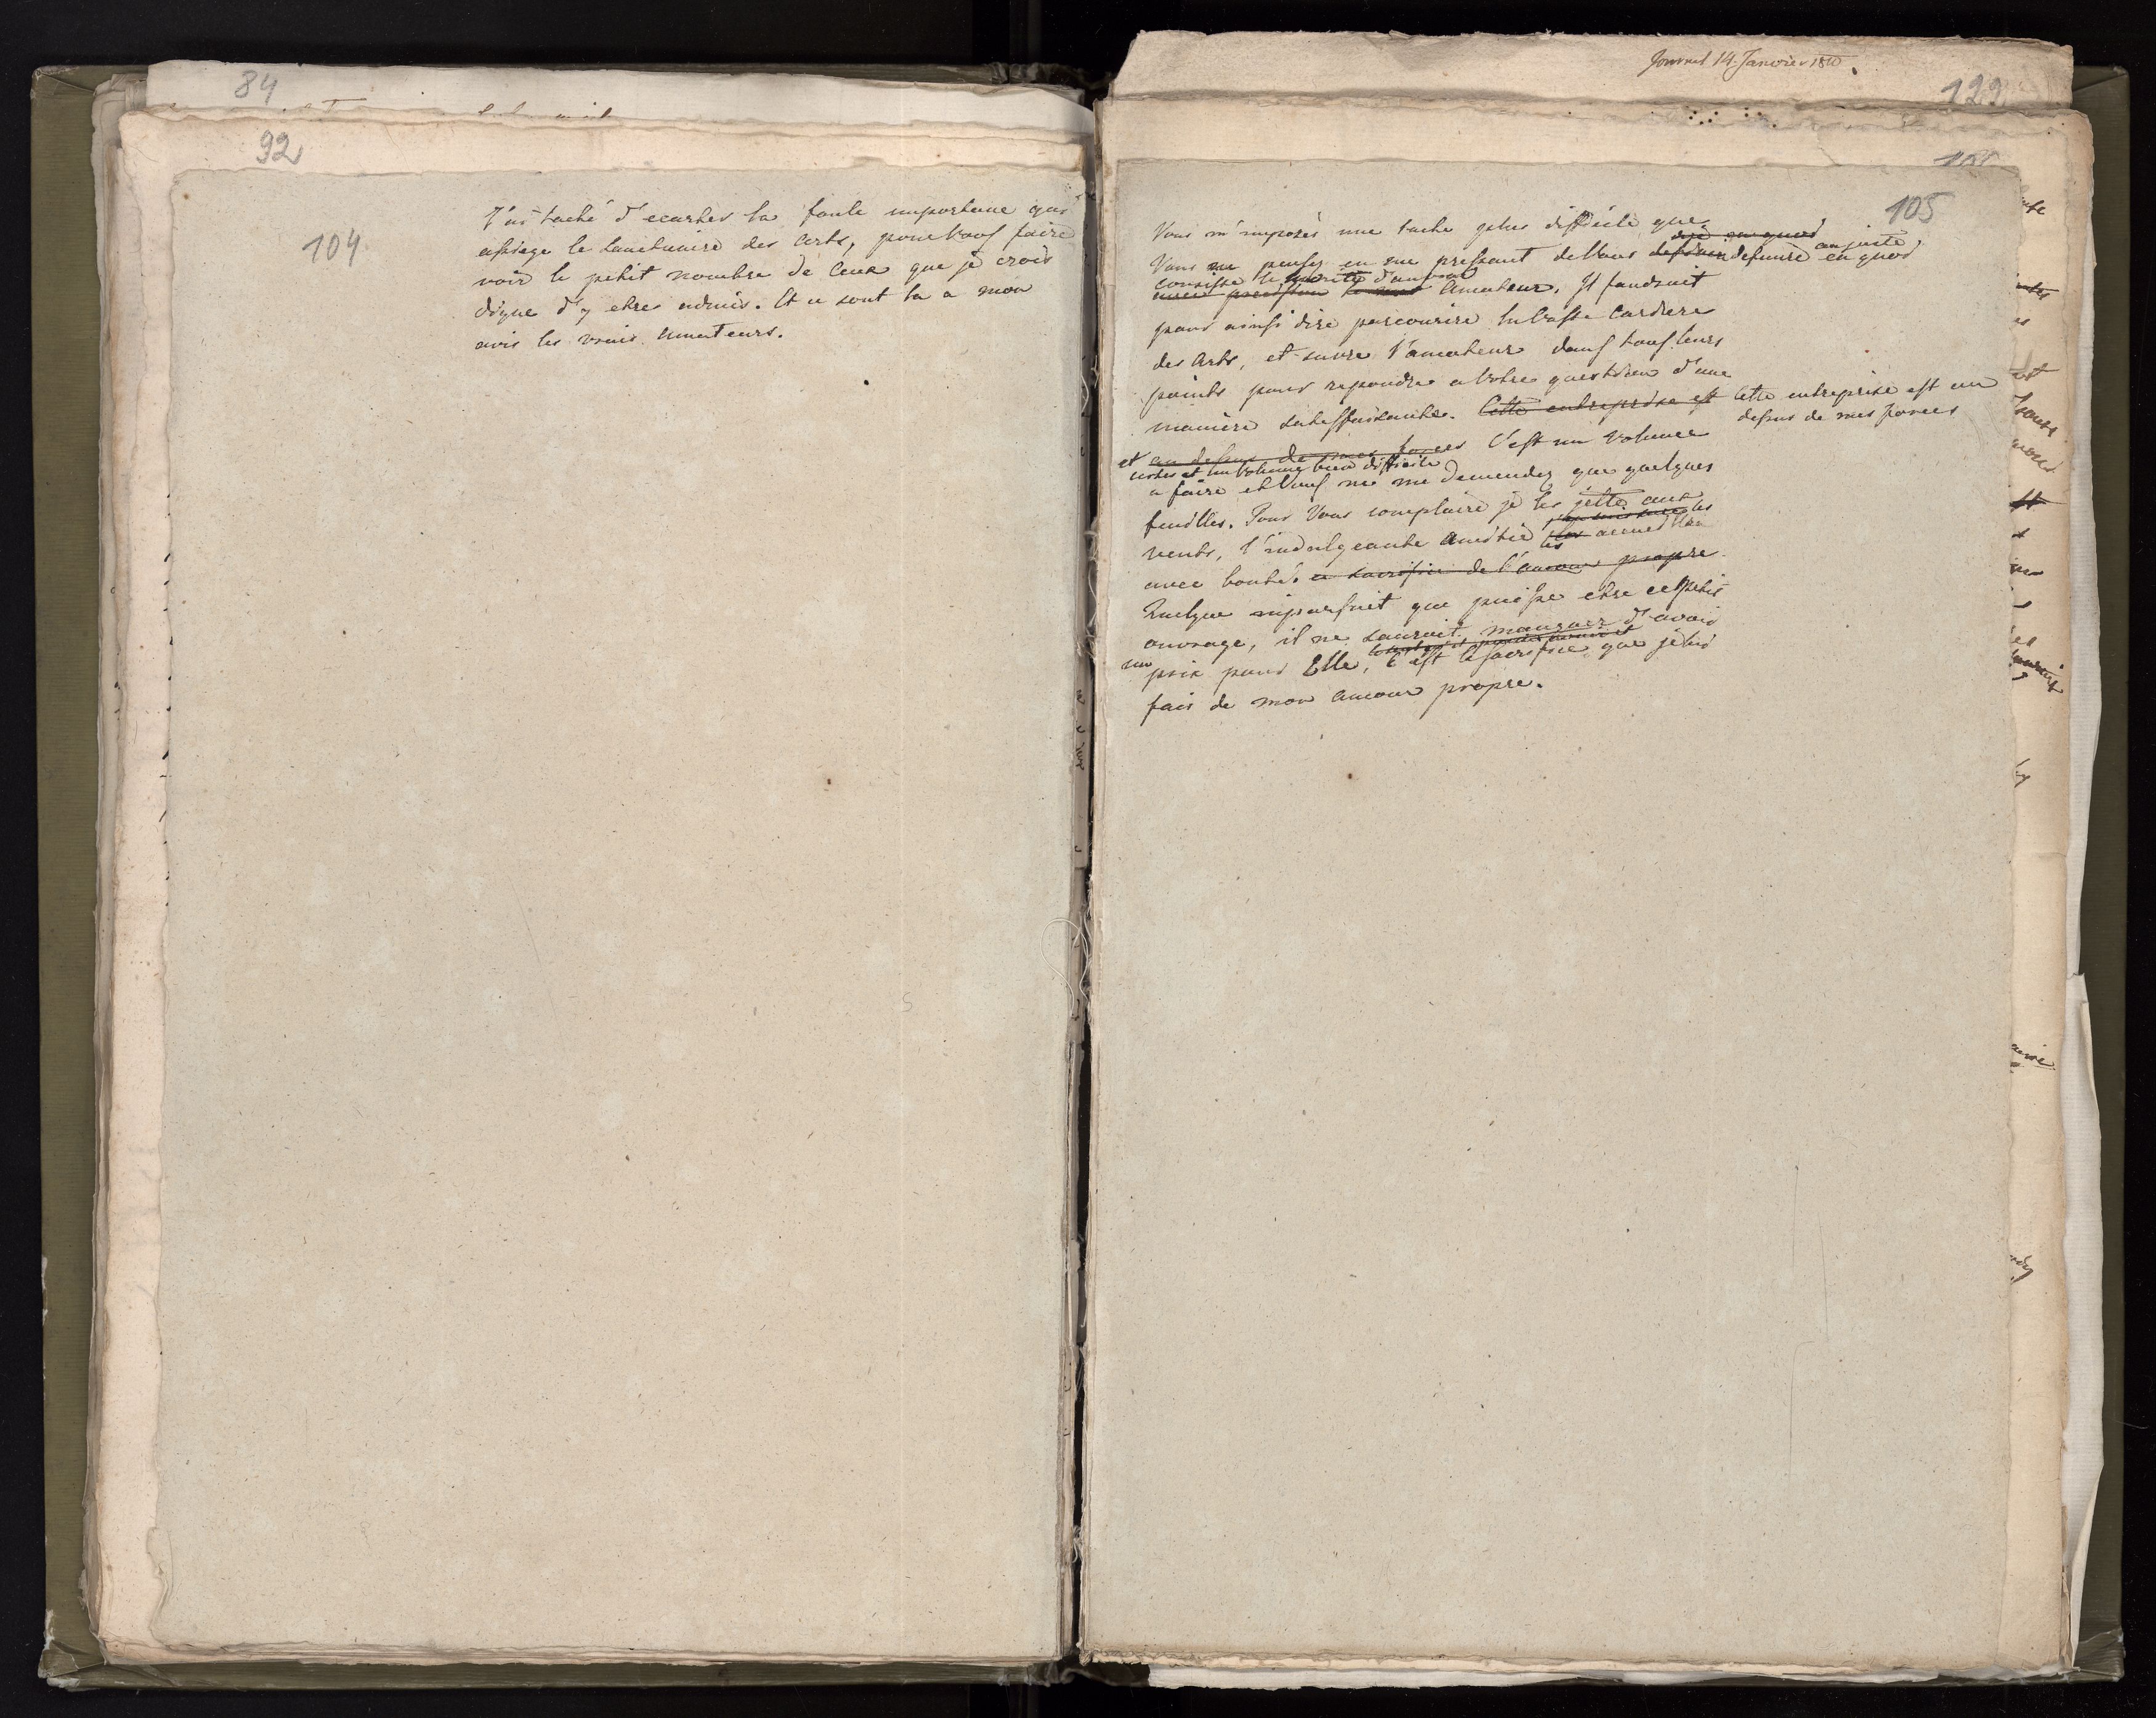 84
92
104
J'ai taché d'ecarter la foule importune qui
assiege le Sanctuaire des Arts, pour Vous faire
voir le petit nombre de Ceux que je crois
digne d'y etre admis. Et ce sont la a mon
avis les vrais Amateurs.
Journal 14 Janvier 1810.
122
105
Vous m'imposés une tache plus difficile que
en quoi
Vous ne pensez en me pressant de Vous definir definire au juste en quoi
consiste le merite d'un vrai
avec precision Amateur. Il faudrait
pour ainsi dire parcourire la Vaste Carriere
des Arts, et suivre l'amateur dans tous leurs
points pour repondre a Votre question d'une
manière satisfaisante. Cette entreprise est Cette entreprise est au
dessus de mes forces
et au dessus de mes forces C'est un Volume
et un Volume bien difficile
a faire et Vous ne me demendez que quelques
feuilles. Pour Vous complaire je les jette aux
vents, l'indulgeante Amitié les accueillera
les
avec bonté. ce sacrifice de l'amour propre
Quelque imparfait que puisse etre ce petit
ouvrage, il ne sauroit manquer d'avoir
un prix pour Elle, c'est le sacrifice que je lui
fais de mon amour propre.